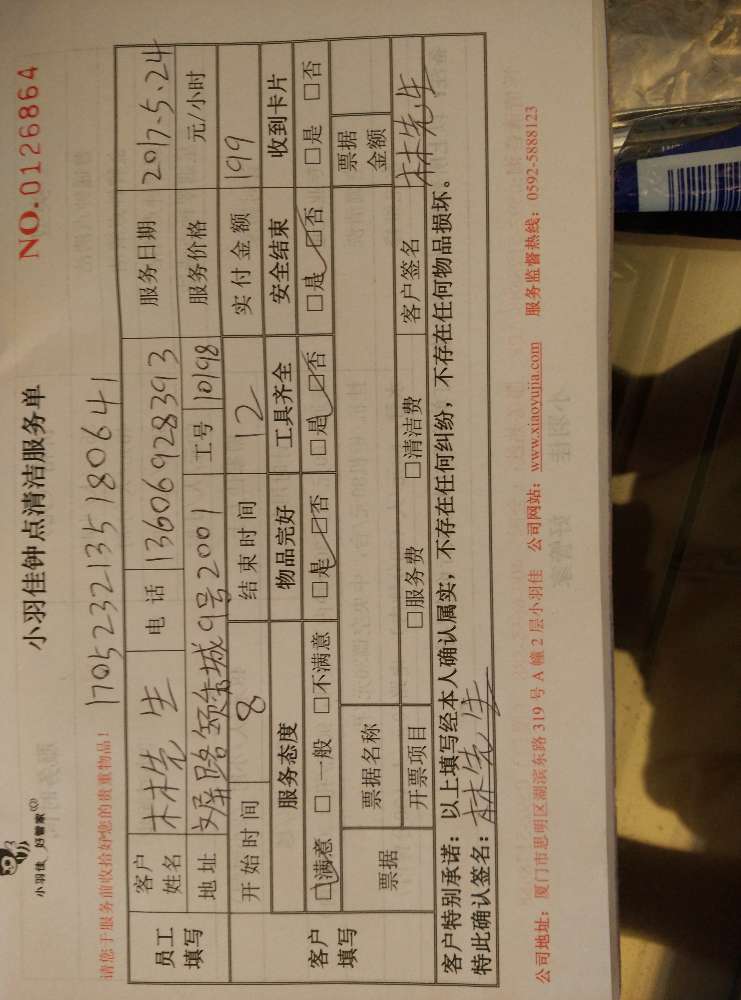 小羽佳 好管家
小羽佳钟点清洁服务单 NO.0126864
请您于服务前收拾好您的贵重物品！ 1705232135180641
员工填写 客户姓名 林先生 电话 13606928393 服务日期 2017.5.24
地址 9号2001 工号 10198 服务价格 元/小时
开始时间 8 结束时间 12 实付金额 199
客户填写 服务态度 物品完好 工具齐全 安全结束 收到卡片
□满意 □一般 □不满意 □是 □否 □是 □否 □是 □否 □是 □否
票据 票据名称 票据金额
开票项目 □服务费 □清洁费 客户签名 林先生
客户特别承诺：以上填写经本人确认属实，不存在任何纠纷，不存在任何物品损坏。
特此确认签名：林先生
公司地址：厦门市思明区湖滨东路319号A幢2层小羽佳 公司网站：www.xiaoyujia.com 服务监督热线：0592-5888123